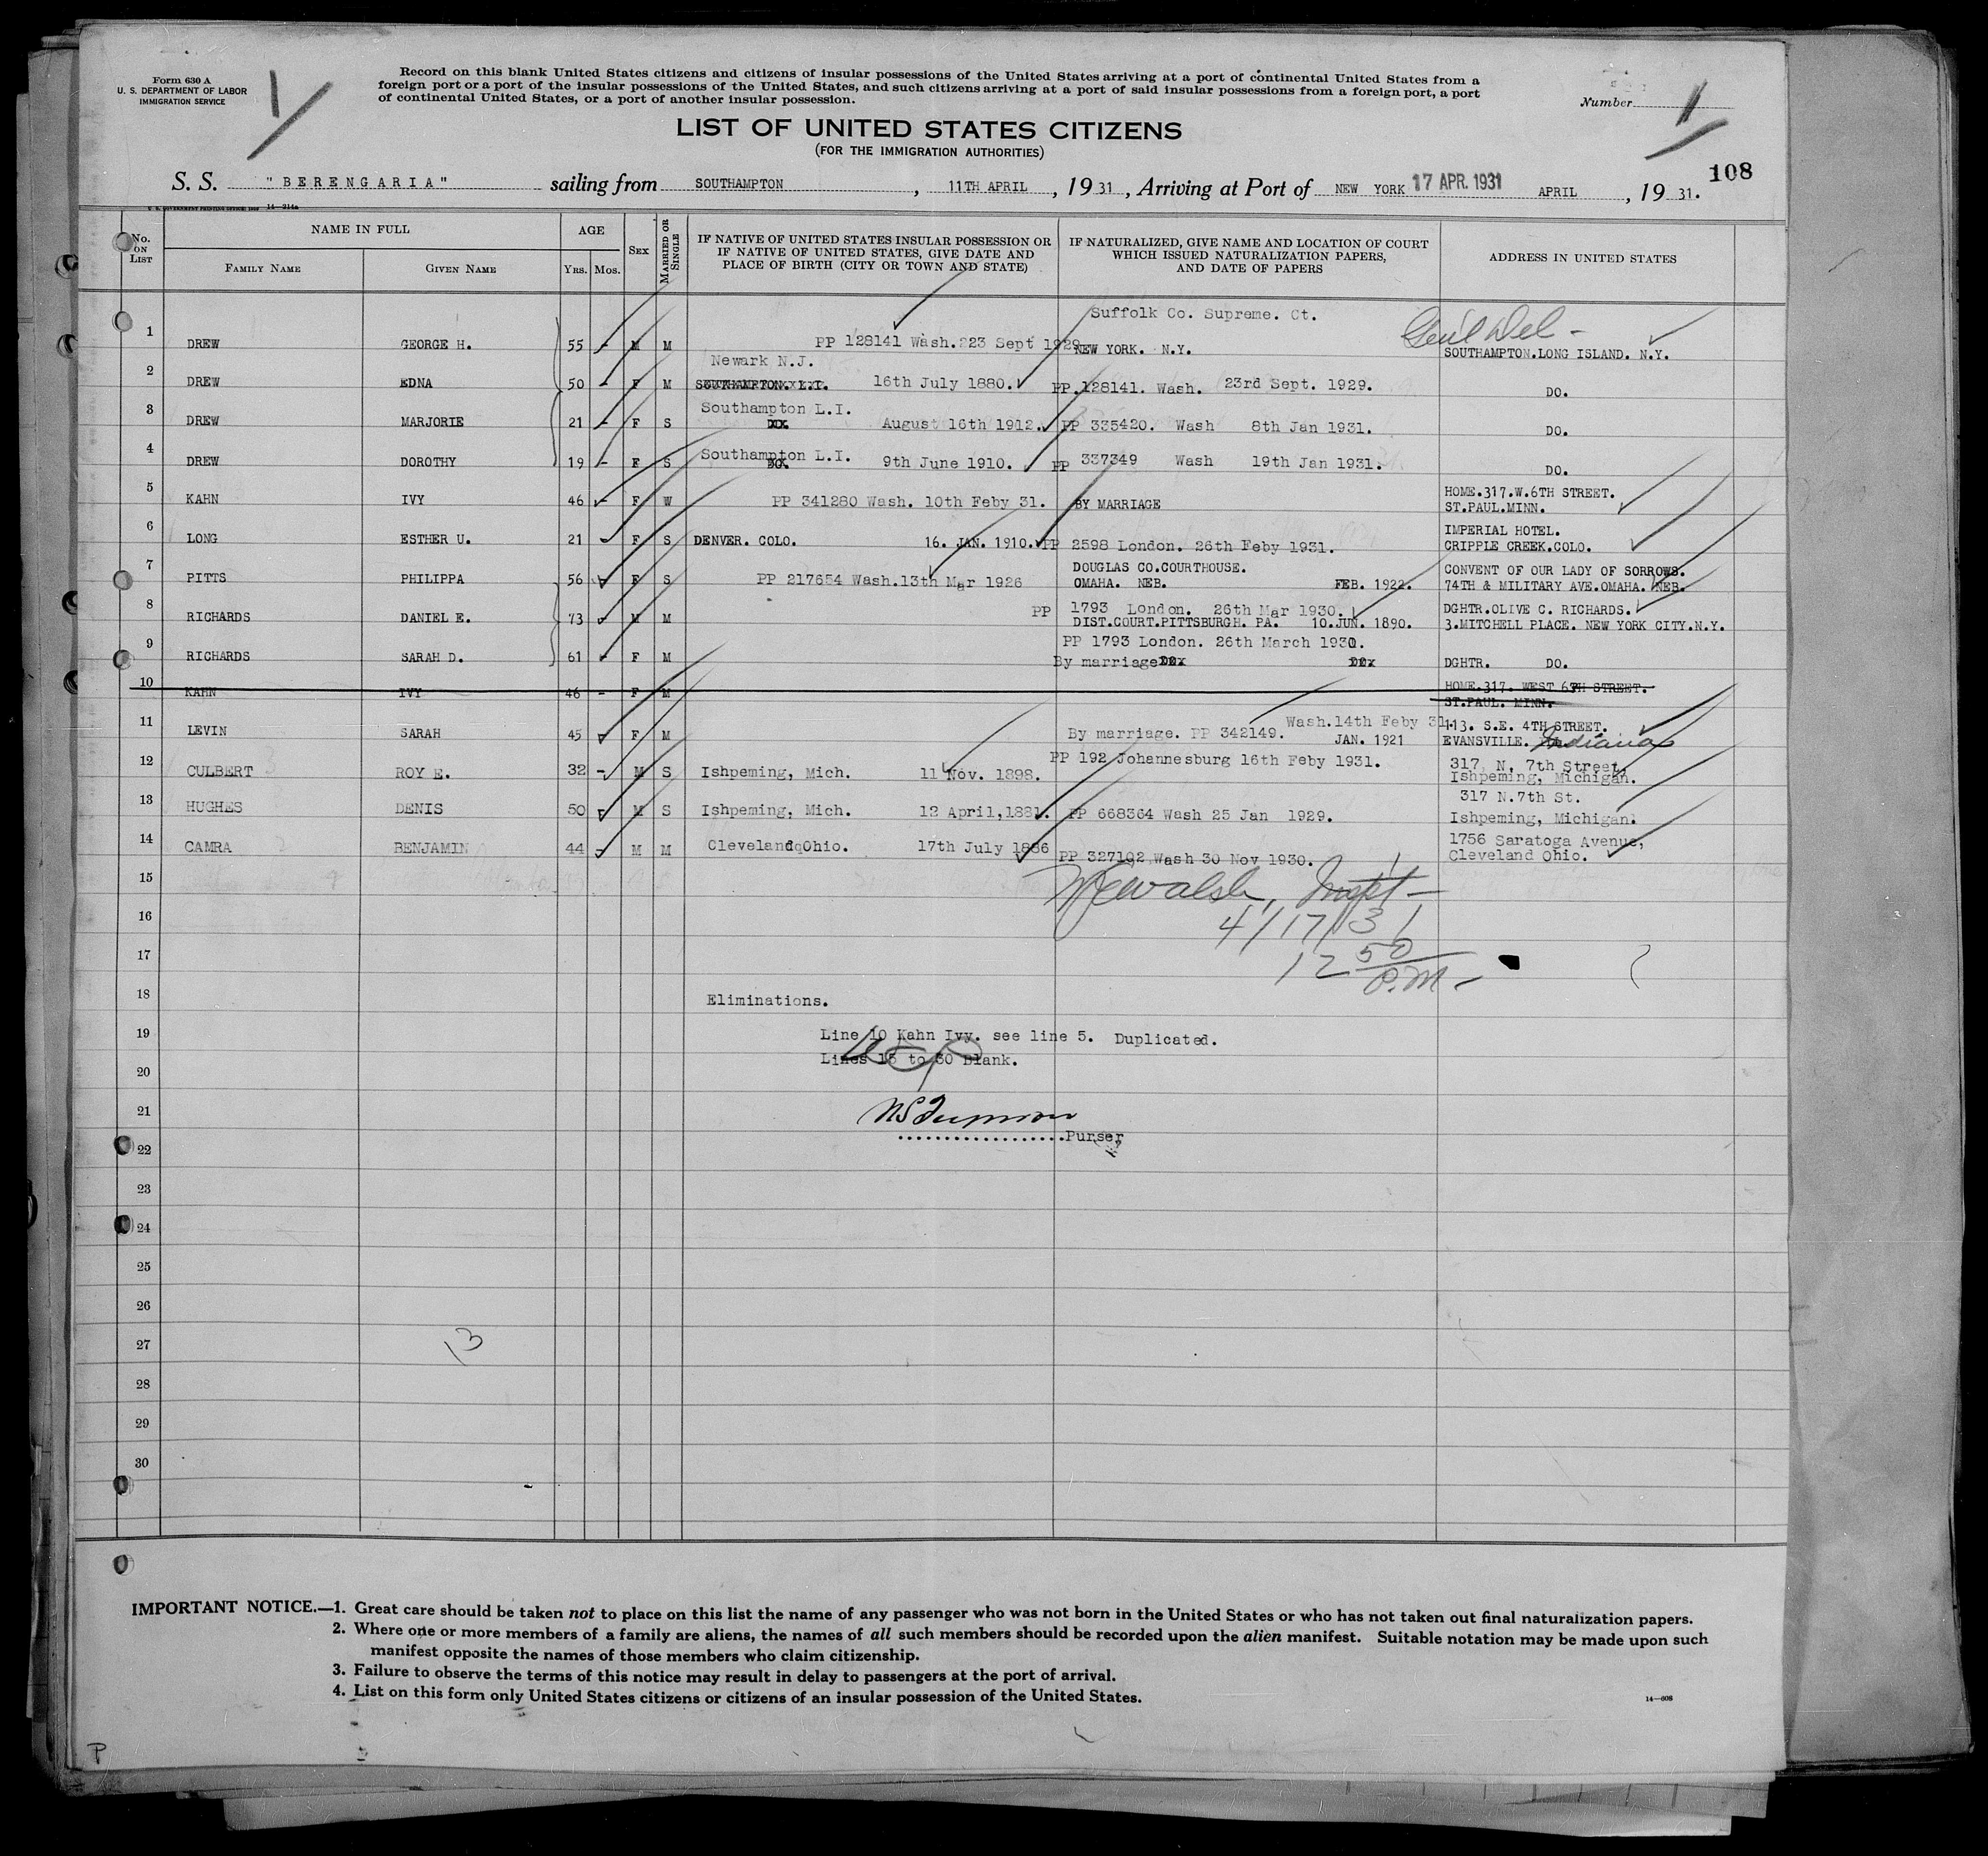 Form 630 A
U. S. DEPARTMENT OF LABOR
IMMIGRATION SERVICE
Record on this blank United States citizens and citizens of insular possessions of the United States arriving at a port of continental United States from a
foreign port or a port of the insular possessions of the United States, and such citizens arriving at a port of said insular possessions from a foreign port, a port
of continental United States, or a port of another insular possession.
Number 1
LIST OF UNITED STATES CITIZENS
(FOR THE IMMIGRATION AUTHORITIES)
108
S. S. "BERENGARIA" sailing from SOUTHAMPTON, 11TH APRIL, 1931, Arriving at Port of NEW YORK 17 APR. 1931 APRIL, 1931.
U. S. GOVERNMENT PRINTING OFFICE 14—214a
No. ON LIST
NAME IN FULL
FAMILY NAME GIVEN NAME
AGE
YRS. MOS.
SEX
MARRIED OR SINGLE
IF NATIVE OF UNITED STATES INSULAR POSSESSION OR
IF NATIVE OF UNITED STATES, GIVE DATE AND
PLACE OF BIRTH (CITY OR TOWN AND STATE)
IF NATURALIZED, GIVE NAME AND LOCATION OF COURT
WHICH ISSUED NATURALIZATION PAPERS,
AND DATE OF PAPERS
ADDRESS IN UNITED STATES
Suffolk Co. Supreme. Ct. Gen'l Del -
1 DREW GEORGE H. 55 - M M PP 128141 Wash. 223 Sept 1929 NEW YORK. N.Y. SOUTHAMPTON.LONG ISLAND. N.Y.
Newark N.J.
2 DREW EDNA 50 - F M SOUTHAMPTON. L.I. 16th July 1880. PP.128141. Wash. 23rd Sept. 1929. DO.
Southampton L.I.
3 DREW MARJORIE 21 - F S DO. August 16th 1912. PP 335420. Wash 8th Jan 1931. DO.
Southampton L.I.
4 DREW DOROTHY 19 - F S DO. 9th June 1910. PP 337349 Wash 19th Jan 1931. DO.
HOME.317.W.6TH STREET.
5 KAHN IVY 46 - F W PP 341280 Wash. 10th Feby 31. BY MARRIAGE ST.PAUL.MINN.
IMPERIAL HOTEL.
6 LONG ESTHER U. 21 - F S DENVER. COLO. 16. JAN. 1910. PP 2598 London. 26th Feby 1931. CRIPPLE CREEK.COLO.
DOUGLAS CO.COURTHOUSE. CONVENT OF OUR LADY OF SORROWS.
7 PITTS PHILIPPA 56 - F S PP 217654 Wash.13th Mar 1926 OMAHA. NEB. FEB. 1922. 74TH & MILITARY AVE.OMAHA. NEB.
PP 1793 London. 26th Mar 1930. DGHTR.OLIVE C. RICHARDS.
8 RICHARDS DANIEL E. 73 - M M DIST.COURT.PITTSBURGH. PA. 10.JUN. 1890. 3.MITCHELL PLACE. NEW YORK CITY.N.Y.
PP 1793 London. 26th March 1930.
9 RICHARDS SARAH D. 61 - F M By marriage DO. DO. DGHTR. DO.
HOME.317. WEST 6TH STREET.
10 KAHN IVY 46 - F M ST.PAUL. MINN.
Wash.14th Feby 31. 113. S.E. 4TH STREET.
11 LEVIN SARAH 45 - F M By marriage. PP 342149. JAN. 1921 EVANSVILLE. Indiana
PP 192 Johannesburg 16th Feby 1931. 317, N, 7th Street,
12 CULBERT ROY E. 32 - M S Ishpeming, Mich. 11 Nov. 1898. Ishpeming, Michigan.
317 N.7th St.
13 HUGHES DENIS 50 - M S Ishpeming, Mich. 12 April,1881. PP 668364 Wash 25 Jan 1929. Ishpeming, Michigan.
1756 Saratoga Avenue,
14 CAMRA BENJAMIN 44 - M M Cleveland Ohio. 17th July 1886 PP 327192 Wash 30 Nov 1930. Cleveland Ohio.
15
Walsh, Inspt -
16
4/17/31
17
12 50 P.M -
18 Eliminations.
19 Line 10 Kahn Ivy. see line 5. Duplicated.
Lines 15 to 30 Blank.
20
21
Purser
22
23
24
25
26
27
13
28
29
30
IMPORTANT NOTICE.—1. Great care should be taken not to place on this list the name of any passenger who was not born in the United States or who has not taken out final naturalization papers.
2. Where one or more members of a family are aliens, the names of all such members should be recorded upon the alien manifest. Suitable notation may be made upon such
manifest opposite the names of those members who claim citizenship.
3. Failure to observe the terms of this notice may result in delay to passengers at the port of arrival.
4. List on this form only United States citizens or citizens of an insular possession of the United States.
14—608
P